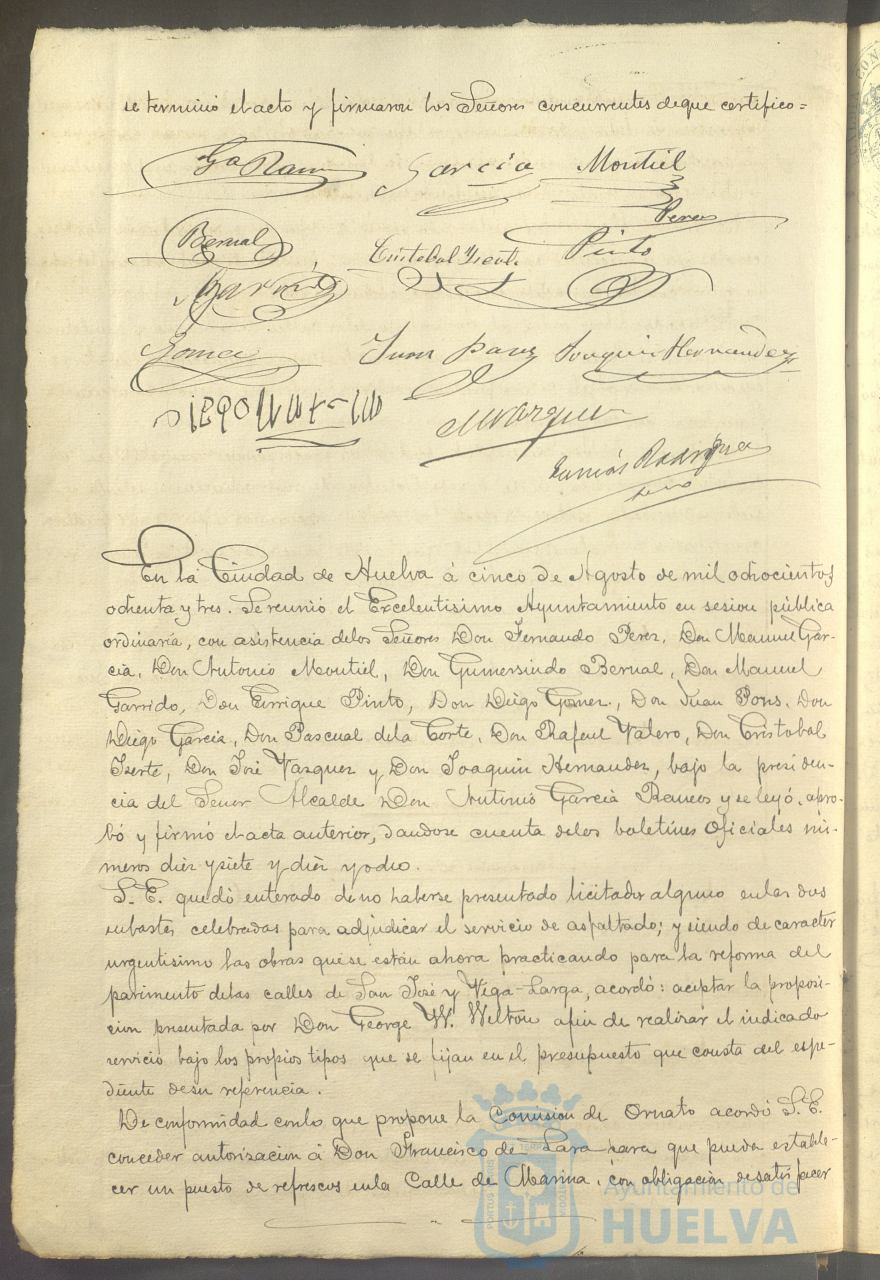 se terminó el acto y firmaron los Señores concurrentes de que certifico=
Ga Ramos García Montiel
Perez
Bernal Cristobal Yserte Pinto
Garrido
Gomez Juan Pons Joaquin Hernandez
DIEGO
Vazquez
Rodriguez
En la Ciudad de Huelva á cinco de Agosto de mil ochocientos
ochenta y tres. Se reunió el Excelentisimo Ayuntamiento en sesion pública
ordinaria, con asistencia delos Señores Don Fernando Perez, Don Manuel Gar-
cia, Don Antonio Montiel, Don Gumersindo Bernal, Don Manuel
Garrido, Don Enrrique Pinto, Don Diego Gomez, Don Juan Pons, Don
Diego Garcia, Don Pascual dela Corte, Don Rafael Valero, Don Cristobal
Iserte, Don José Vazquez y Don Joaquin Hernandez, bajo la presiden-
cia del Señor Alcalde Don Antonio Garcia Ramos y se leyó, apro-
bó y firmó el acta anterior, dandose cuenta delos boletines oficiales nú-
meros diez y siete y diez y ocho.
S. E. quedó enterado de no haberse presentado licitador alguno en las dos
subastas celebradas para adjudicar el servicio de asfaltado; y siendo de caracter
urgentisimo las obras que se están ahora practicando para la reforma del
pavimento delas calles de San José y Vega-Larga, acordó: aceptar la proposi-
cion presentada por Don George W. Welton afin de realizar el indicado
servicio bajo los propios tipos que se fijan en el presupuesto que consta del espe-
diente desu referencia.
De conformidad conlo que propone la Comision de Ornato acordó S. E.
conceder autorizacion á Don Francisco de Lara para que pueda estable-
cer un puesto de refrescos enla Calle de Marina, con obligacion desatisfacer
Ayuntamiento de
HUELVA